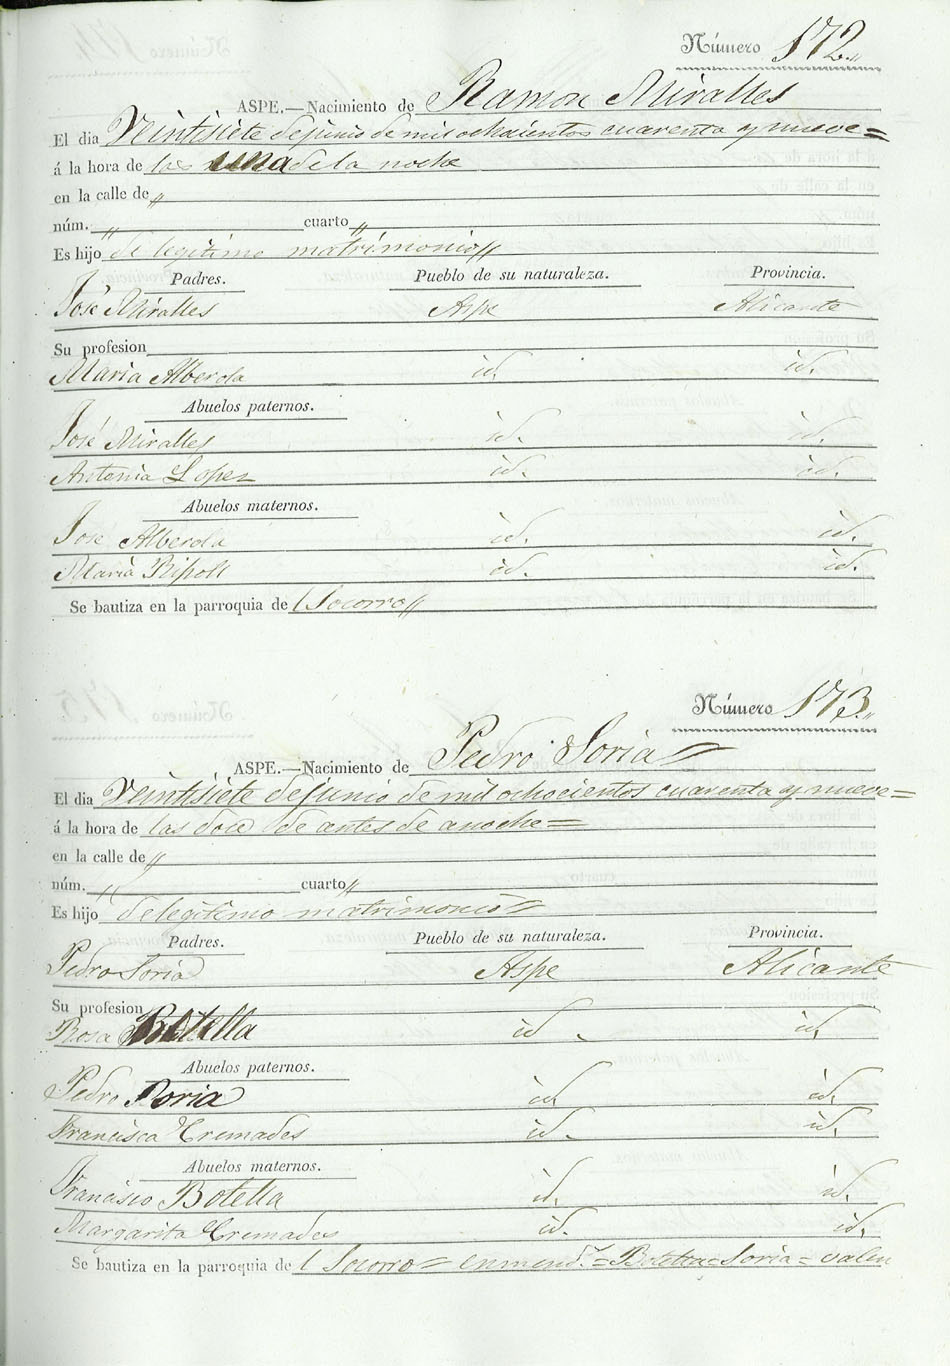 Número 172
ASPE.—Nacimiento de Ramon Miralles
El dia Veintisiete de junio de mil ochocientos cuarenta y nueve=
á la hora de las una de la noche
en la calle de "
núm. " cuarto "
Es hijo de legitimo matrimonio "
Padres. Pueblo de su naturaleza. Provincia.
José Miralles Aspe Alicante
Su profesion
Maria Alberola id. id.
Abuelos paternos.
José Miralles id. id.
Antonia Lopez id. id.
Abuelos maternos.
José Alberola id. id.
Maria Ripoll id. id.
Se bautiza en la parroquia del Socorro "
Número 173.
ASPE.—Nacimiento de Pedro Soria=
El dia Veintisiete de junio de mil ochocientos cuarenta y nueve=
á la hora de las doce de antes de anoche=
en la calle de "
núm. " cuarto "
Es hijo de legitimo matrimonio=
Padres. Pueblo de su naturaleza. Provincia.
Pedro Soria Aspe Alicante
Su profesion
Rosa Botella id. id.
Abuelos paternos.
Pedro Soria id. id.
Francisca Cremades id. id.
Abuelos maternos.
Francisco Botella id. id.
Margarita Cremades id. id.
Se bautiza en la parroquia del Socorro= enmend.os=Botella=Soria=valen